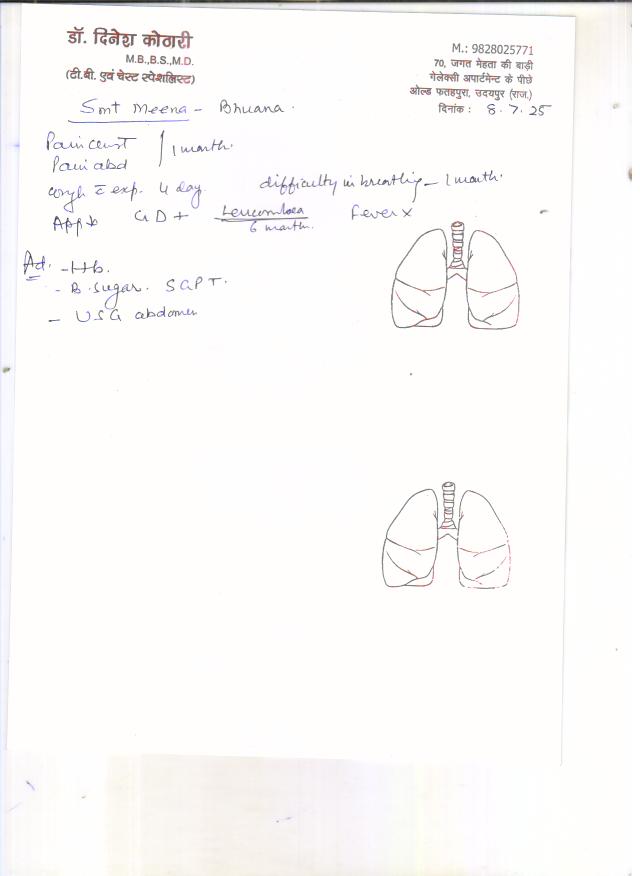 डॉ. दिनेश कोठारी
M.B.,B.S.,M.D.
(टी.बी. एवं चेस्ट स्पेशलिस्ट)
M.: 9828025771
70, जगत मेहता की बाड़ी
गेलेक्सी अपार्टमेन्ट के पीछे
ओल्ड फतहपुरा, उदयपुर (राज.)
दिनांक : 8.7.25
Smt Meena - Bhuana.
Pain
Pain abd
1 month.
cough c̄ exp. 4 day.
difficulty in breathing - 1 month.
App ↓ GD +
6 month.
Fever x
Ad.
- Hb.
- B. Sugar. SGPT.
- USG abdomen